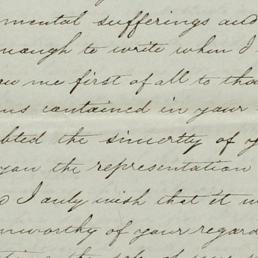 mental sufferings and
enough to write when I
me first of all to tha
contained in your
bted the sincerity of y
upon the representation
I only wish that it w
unworthy of your regard